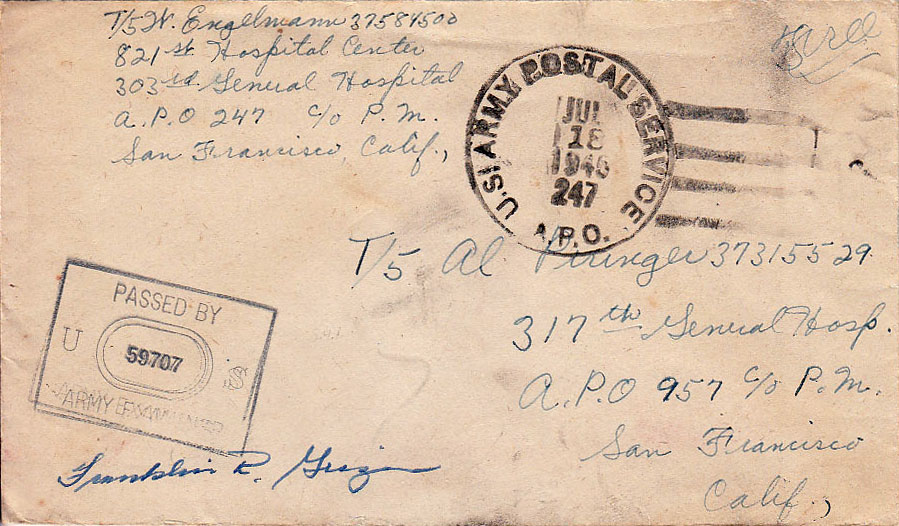 T/5 W. Engelmann 37584500
821st Hospital Center
303rd General Hospital
A.P.O 247 c/o P.M.
San Francisco, Calif.,
Free
U.S. ARMY POSTAL SERVICE
JUL
18
194
247
A.P.O.
T/5 Al Piringer 37315529
317th General Hosp.
A.P.O 957 c/o P.M.
San Francisco
Calif.,
PASSED BY
U 59707 S
ARMY EXAMINER
Franklin R.